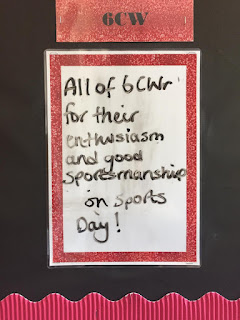 6CW
All of 6CWr
for their
enthusiasm
and good
sportsmanship
on Sports
Day!